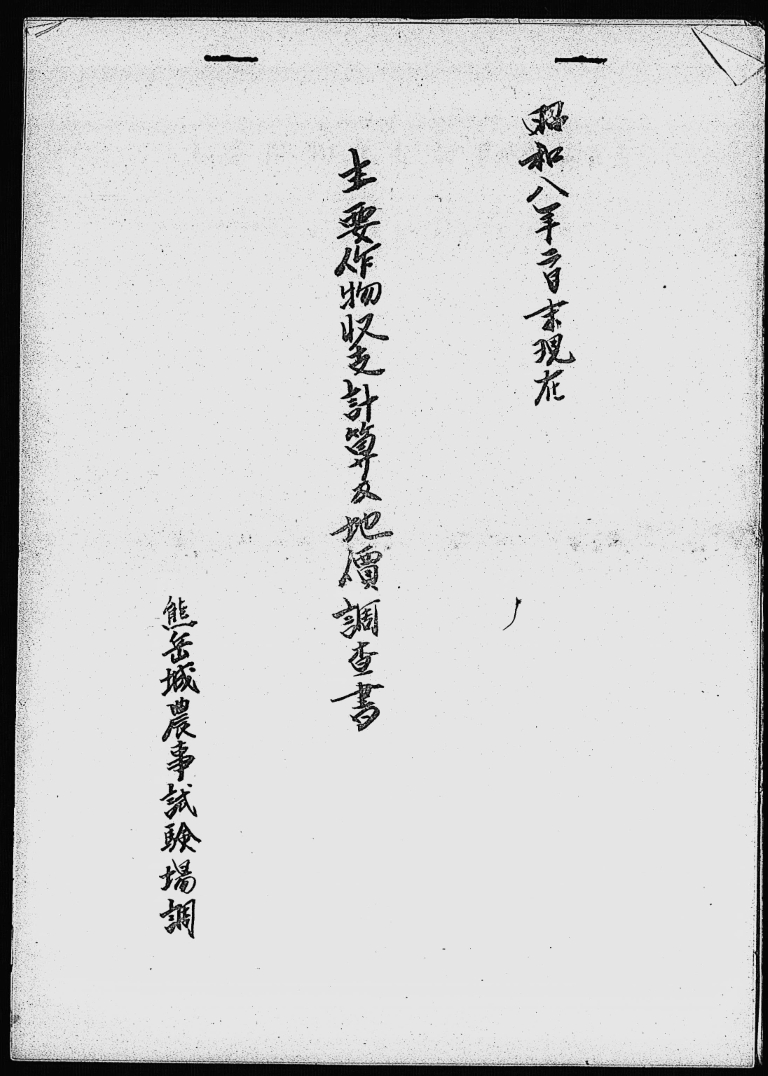 昭和八年二月末現在
主要作物収支計算及地價調査書
熊岳城農事試験場調